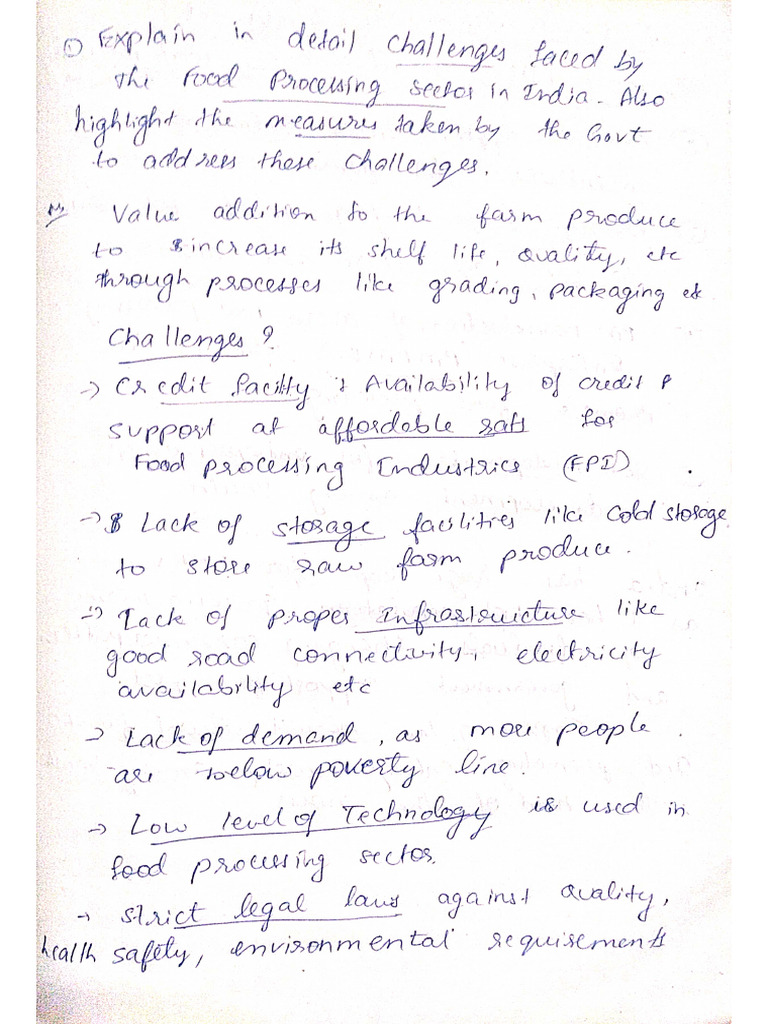 ① Explain in detail challenges faced by
the Food Processing sector in India. Also
highlight the measures taken by the Govt
to address these challenges.
Value addition to the farm produce
to increase its shelf life, quality, etc
through processes like grading, packaging etc
Challenges ?
→ Credit facility : Availability of credit
support at affordable rate for
Food processing Industries (FPI)
→ Lack of storage facilities like cold storage
to store raw farm produce.
→ Lack of proper infrastructure like
good road connectivity, electricity
availability etc
→ Lack of demand, as more people
are below poverty line.
→ Low level of Technology is used in
food processing sector.
→ Strict legal laws against quality,
health safety, environmental requirements